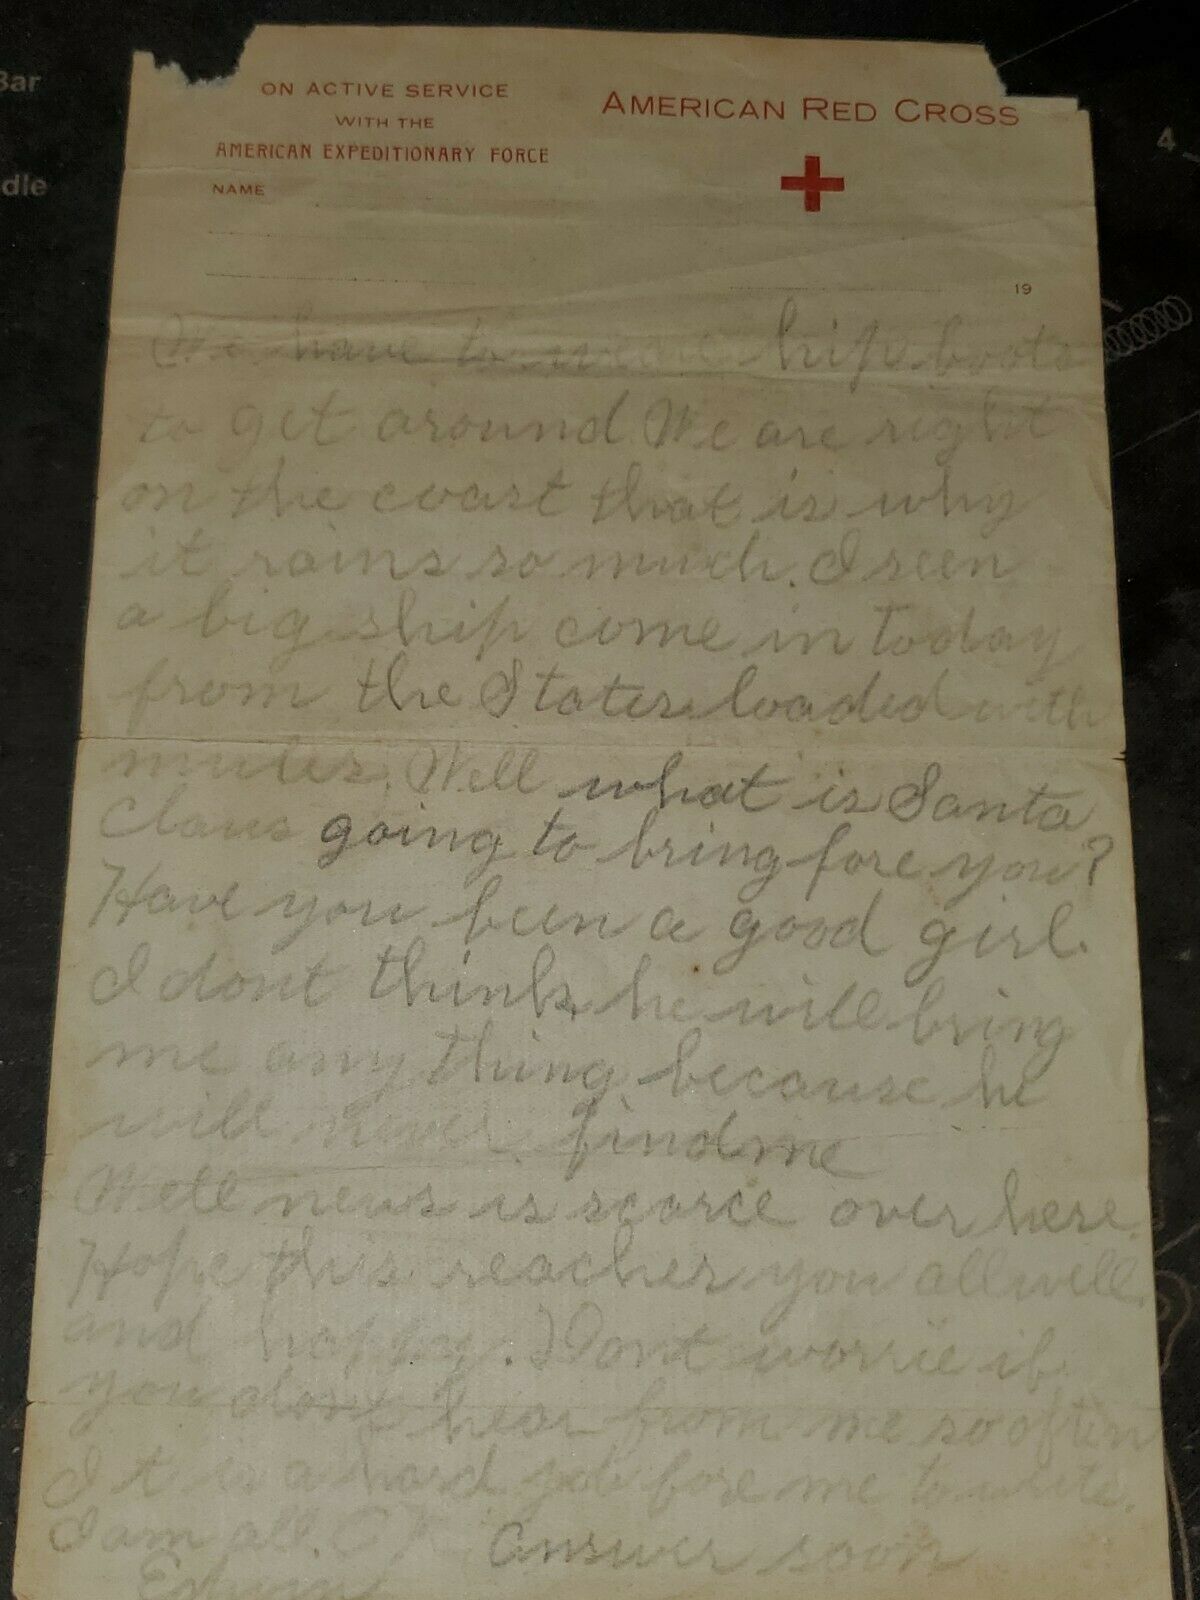 Bar
dle
4
ON ACTIVE SERVICE
WITH THE
AMERICAN EXPEDITIONARY FORCE
NAME
AMERICAN RED CROSS
19
We have to weare hip boots
to get around We are right
on the coast that is why
it rains so much. I seen
a big ship come in today
from the States loaded with
mules. Well what is Santa
Claus going to bring fore you?
Have you been a good girl.
I dont think he will bring
me any thing because he
will never find me
Well news is scarce over here.
Hope this reaches you all well
and happy. Dont worrie if
you dont hear from me so often
It is a hard job fore me to write.
I am all. O K. answer soon
Edwin